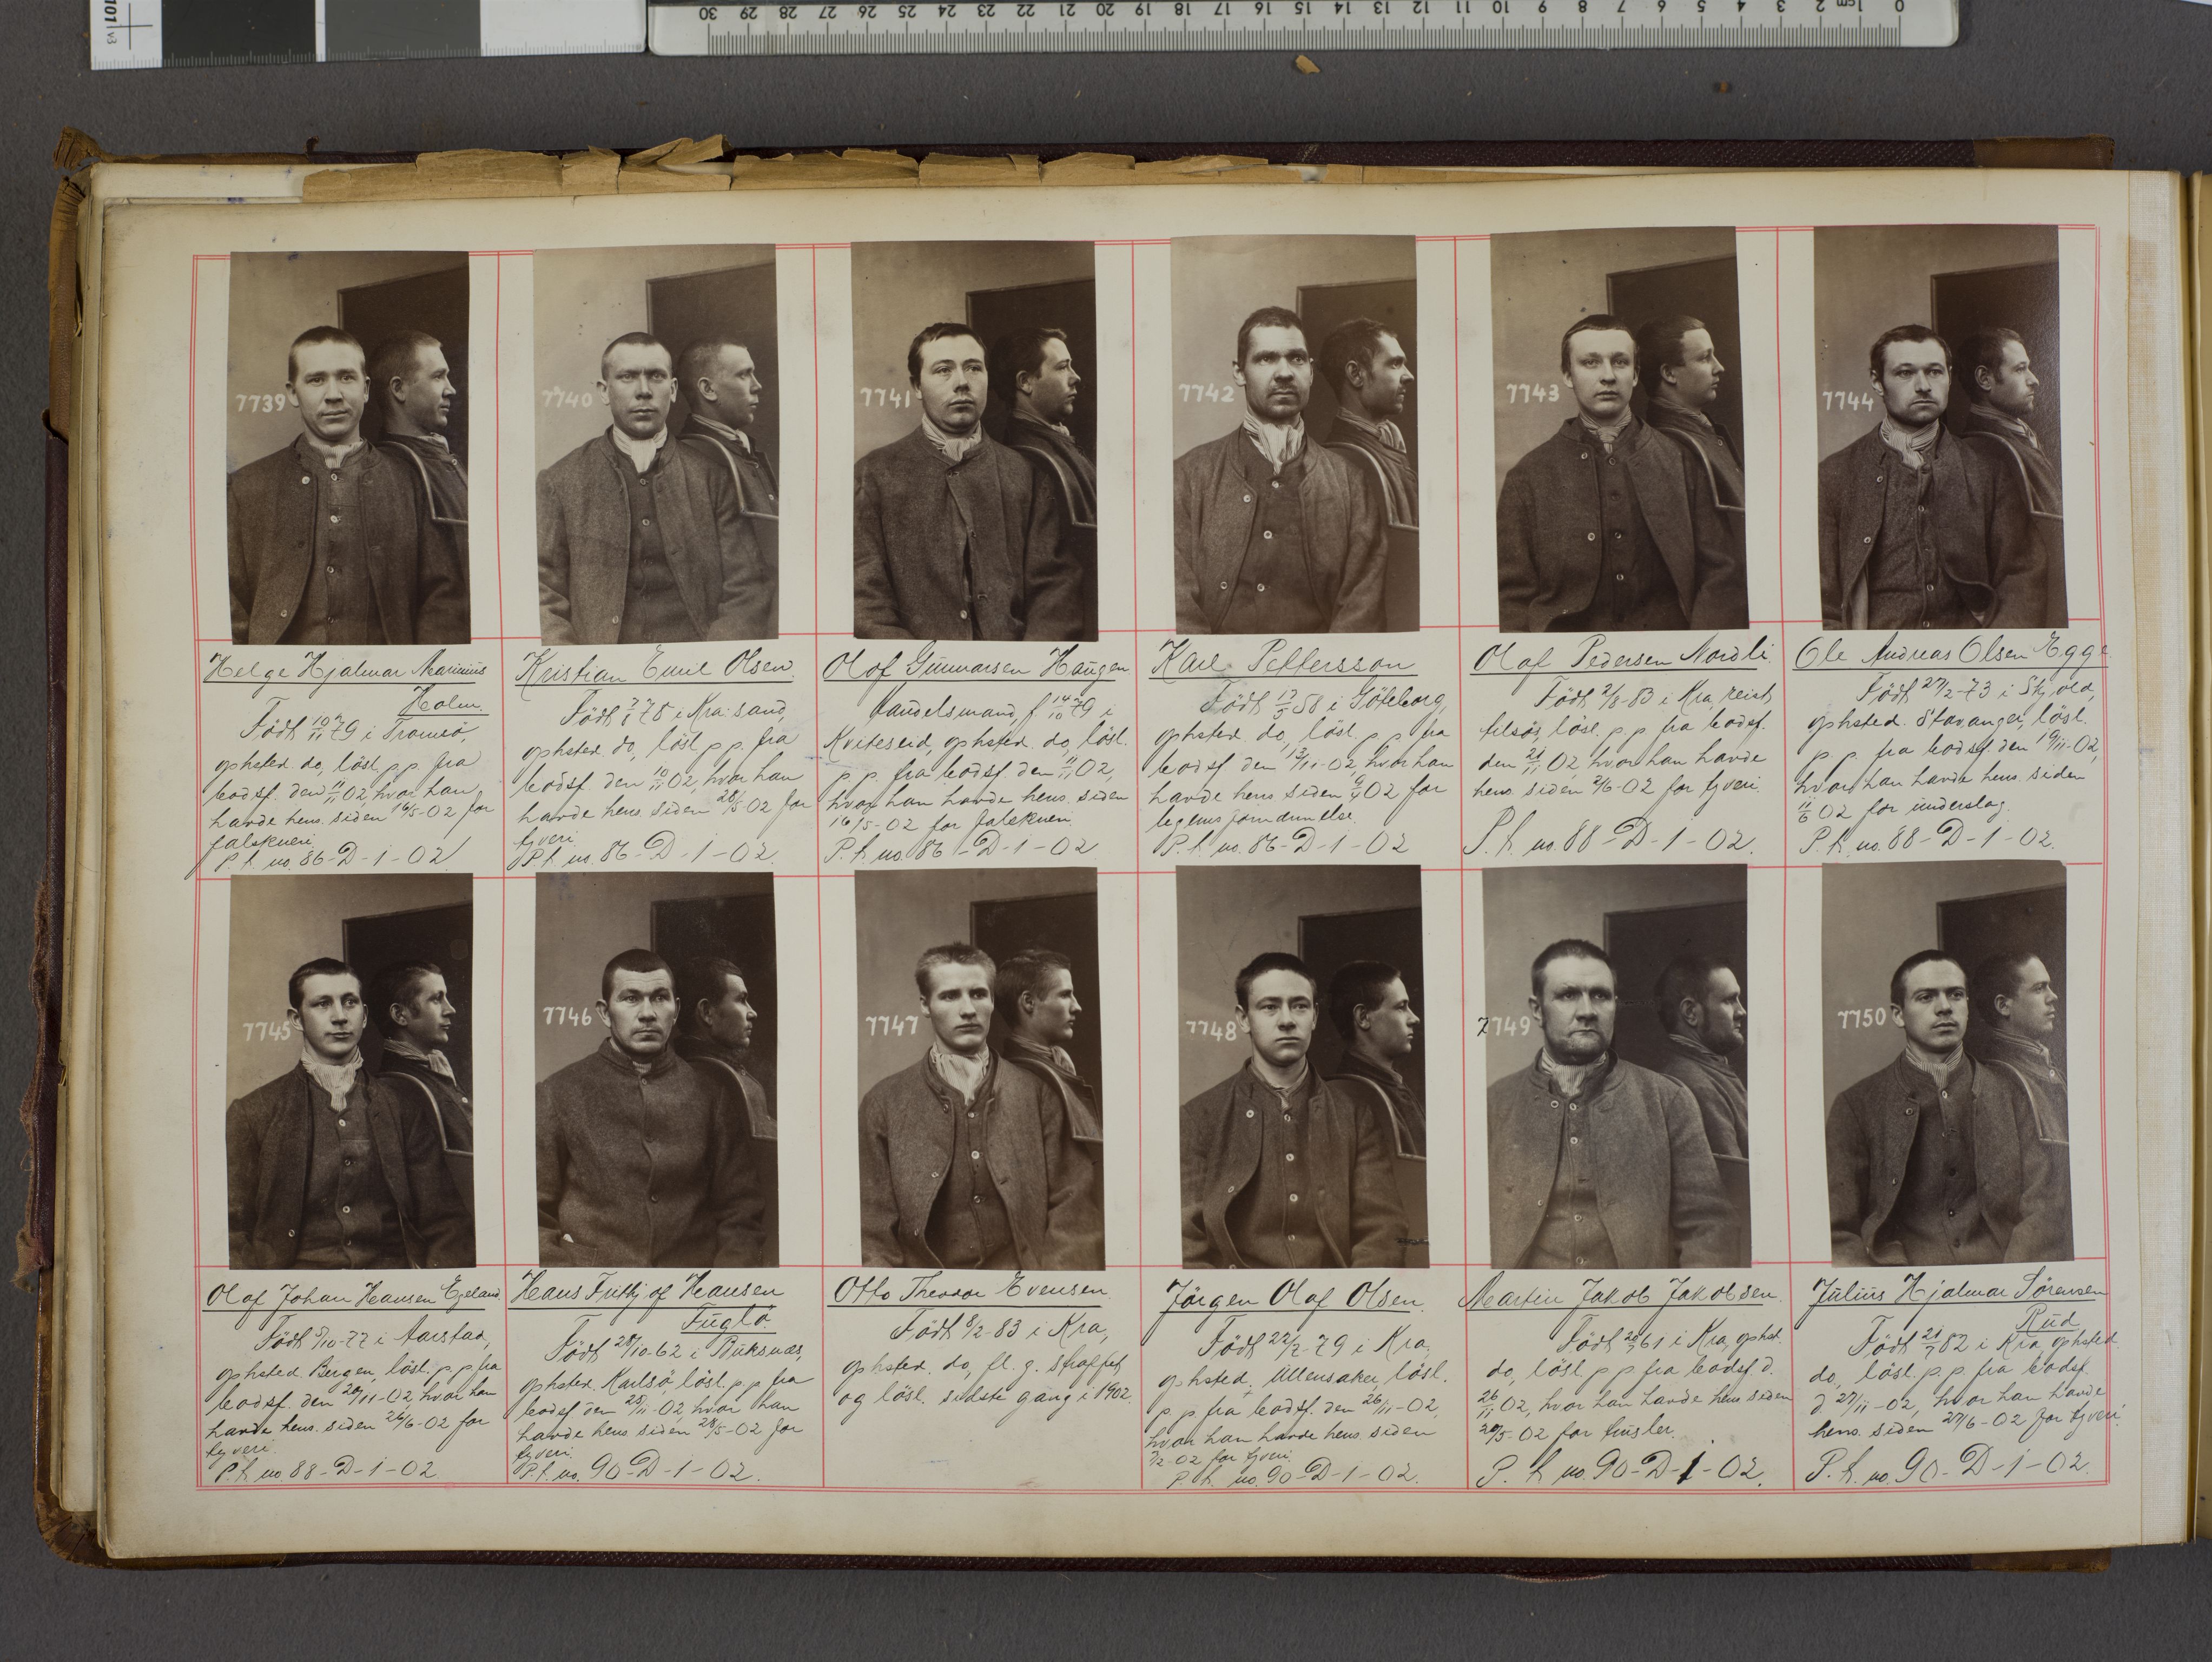 101 v3
0 1cm 2 3 4 5 6 7 8 9 10 11 12 13 14 15 16 17 18 19 20 21 22 23 24 25 26 27 28 29 30
7739
Helge Hjalmar Marinius
Holm.
Födt 10/11 79 i Tromsö,
ophsted do, lösl. p. p. fra
bodsf. den 11/11 02, hvor han
havde hens. siden 16/5-02 for
falskneri.
P. k. no. 86-D-1-02
7740
Kristian Emil Olsen.
Födt 7/1 78 i Kra.sand,
ophsted do, lösl. p. p. fra
bodsf. den 10/11 02, hvor han
havde hens. siden 28/5-02 for
tyveri.
P. k. no. 86-D-1-02.
7741
Olof Gunnarsen Haugen
Handelsmand, f 14/10 79 i
Kviteseid, ophsted. do, lösl.
p. p. fra bodsf. den 11/11 02,
hvor han havde hens. siden
16/5-02 for falskneri.
P. k. no. 86-D-1-02
7742
Karl Pettersson
Födt 17/5 58 i Göteborg,
ophsted do, lösl. p. p. fra
bodsf. den 13/11-02, hvor han
havde hens. siden 9/4 02 for
legemsfordundelse.
P. k. no. 86-D-1-02
7743
Olaf Pedersen Nordli.
Födt 2/8-83 i Kra, reist
tilsös, lösl. p. p. fra bodsf.
den 21/11 02 hvor han havde
hens. siden 2/6-02 for tyveri.
P. k. no. 88-D-1-02.
7744
Ole Andreas Olsen Egge
Födt 27/2-73 i Skjold,
ophsted. Stavanger, lösl.
p. p. fra bodsf. den 19/11-02,
hvor han havde hens. siden
11/6 02 for underslag.
P. k. no. 88-D-1-02.
7745
Olaf Johan Hansen Egeland.
Födt 5/10-77 i Aarstad,
ophsted Bergen, lösl. p. p. fra
bodsf. den 20/11-02, hvor han
havde hens. siden 26/6-02 for
tyveri.
P. k. no. 88-D-1-02
7746
Hans Frithjof Hansen
Fuglö
Födt 28/10-62 i Buksnæs,
ophsted. Karlsö, lösl. p. p. fra
bodsf den 25/11-02, hvor han
havde hens. siden 28/5-02 for
tyveri.
P. k. no. 90-D-1-02.
7747
Otto Theodor Evensen.
Födt 8/2-83 i Kra,
ophsted. do, fl. g. straffet
og lösl. sidste gang i 1902
7748
Jörgen Olaf Olsen.
Födt 22/2-79 i Kra,
ophsted. Ullensaker, lösl.
p. p. fra bodsf. den 26/11-02,
hvor han havde hens. siden
7/2-02 for tyveri.
P. k. no. 90-D-1-02.
7749
Martin Jakob Jakobsen.
Födt 61 i Kra, ophst.
do, lösl. p. p. fra bodsf. d.
26/11 02, hvor han havde hens siden
20/5-02 for fusler.
P. k. no. 90-D-1-02.
7750
Julius Hjalmar Sörensen
Rud
Födt 21/7 82 i Kra, ophsted
do, lösl. p. p. fra bodsf.
d 27/11-02, hvor han havde
hens. siden 27/6-02 for tyveri.
P. k. no. 90-D-1-02.